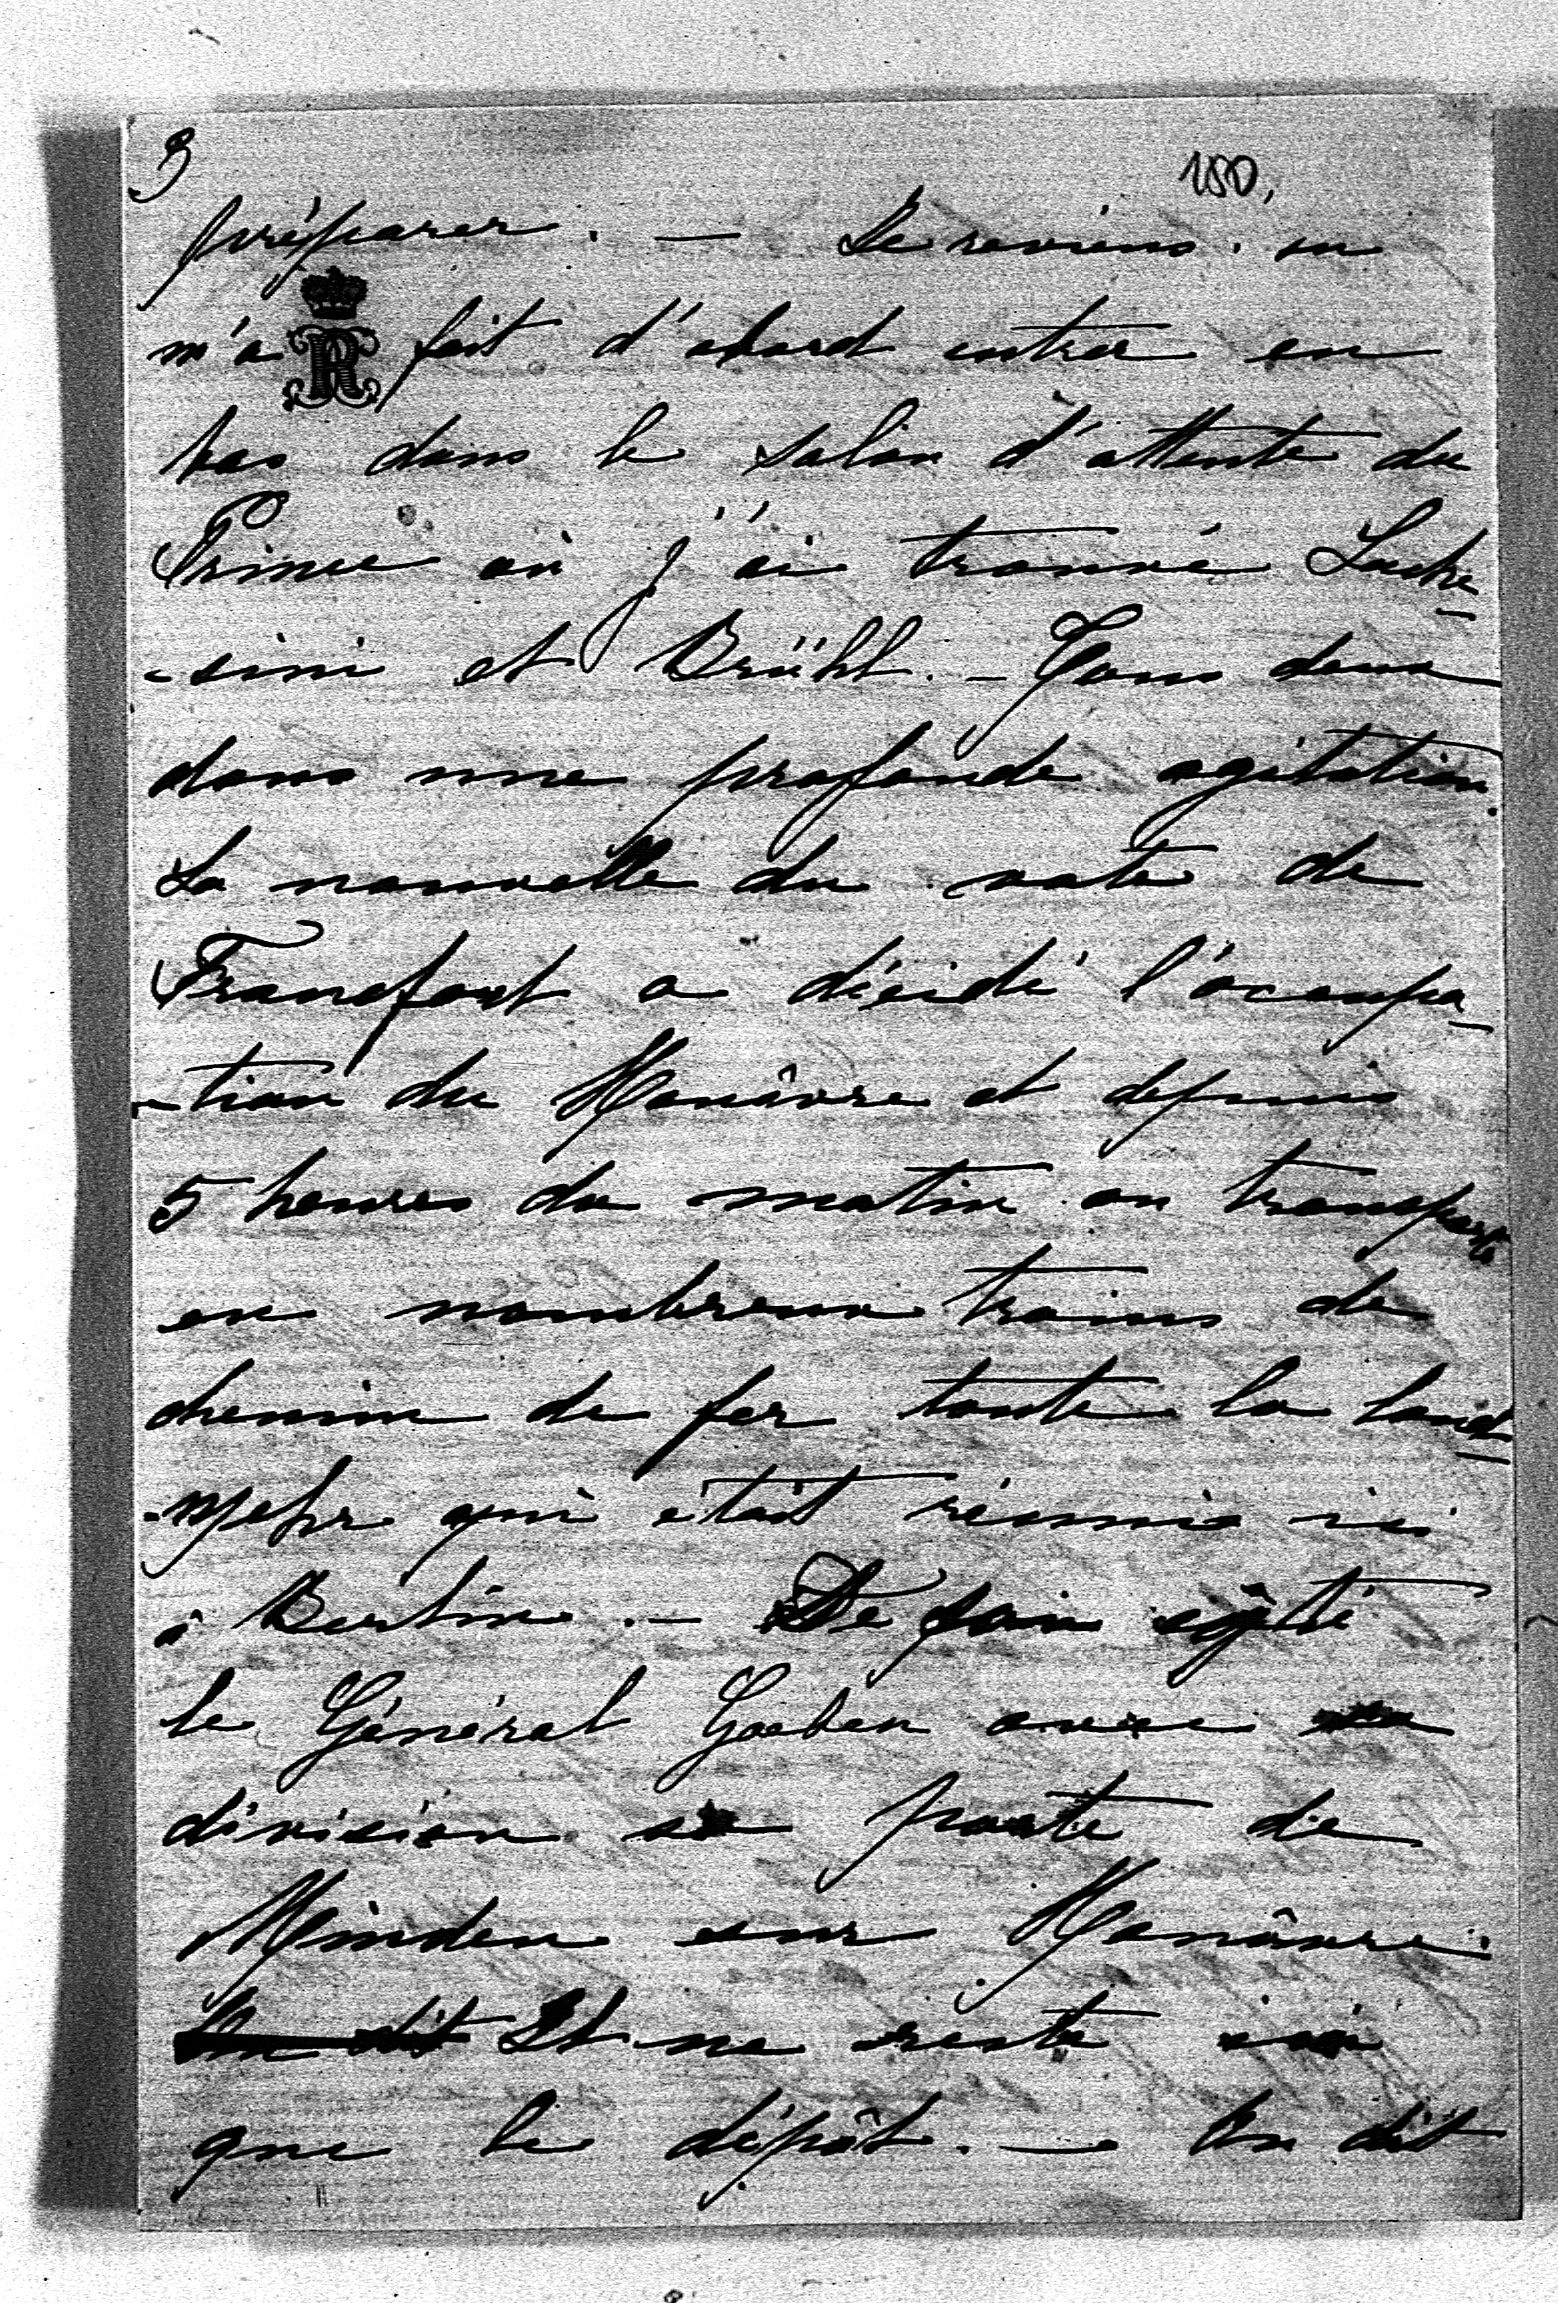 3
180.
préparer. — Je reviens. on
m'a fait d'abord entrer en
bas dans le salon d'attente du
Prince où j'ai trouvé Lucke-
-sini et Brühl. — Tous deux
dans une profonde agitation.
La nouvelle du vote de
Francfort a décidé l'occupa-
-tion du Hanôvre et depuis
5 heures du matin on transporte
en nombreux trains de
chemin de fer toute la land-
-wehr qui était réunie ici
à Berlin. — De son côté
le Général Goeben avec sa
division se porte de
Minden sur Hanôvre.
On dit Il ne reste ici
que le dépôt. — On dit